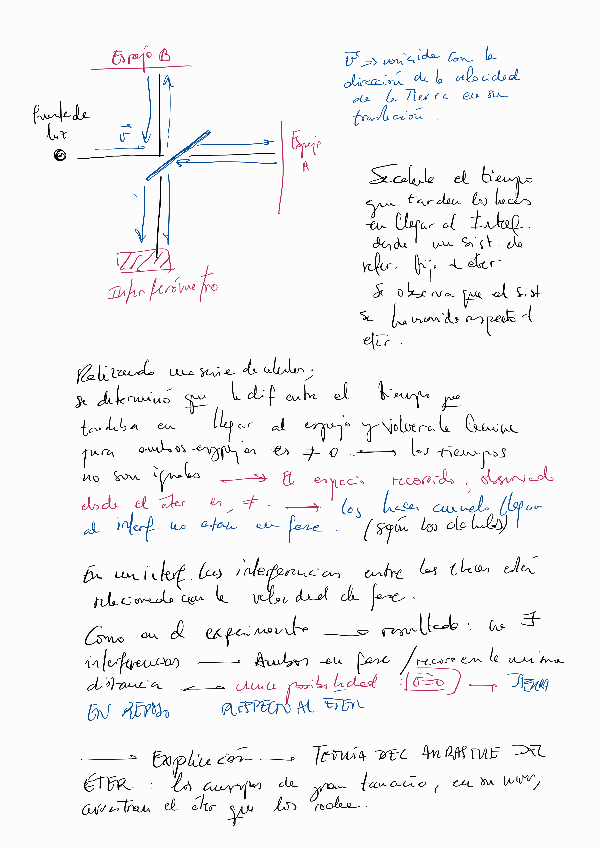 Espejo B
v ⇒ coincide con la
dirección de la velocidad
de la Tierra en su
traslación.
Fuente de
luz
v
Espejo
A
Interferómetro
Se calcula el tiempo
que tardan los haces
en llegar al Interf.
desde un sist. de
refer. fijo al eter.
Se observa que el sist
se ha movido respecto al
eter.
Realizando una serie de cálculos,
se determinó que la dif entre el tiempo que
tardaba en llegar al espejo y volver la lámina
para ambos espejos es ≠ 0 ⟷ los tiempos
no son iguales → El espacio recorrido, observado
desde el éter es, ≠. → los haces cuando llegan
al interf. no están en fase. (según los cálculos)
En un interf. las interferencias entre los haces están
relacionado con la velocidad de fase.
Como en el experimento → resultado: no ∃
interferencias → Ambos en fase / recorren la misma
distancia ⟷ única posibilidad: (v=0) → TIERRA
EN REPOSO RESPECTO AL ETER
→ Explicación → TEORÍA DEL ARRASTRE DEL
ÉTER: los cuerpos de gran tamaño, en su mov,
arrastran el éter que los rodea.